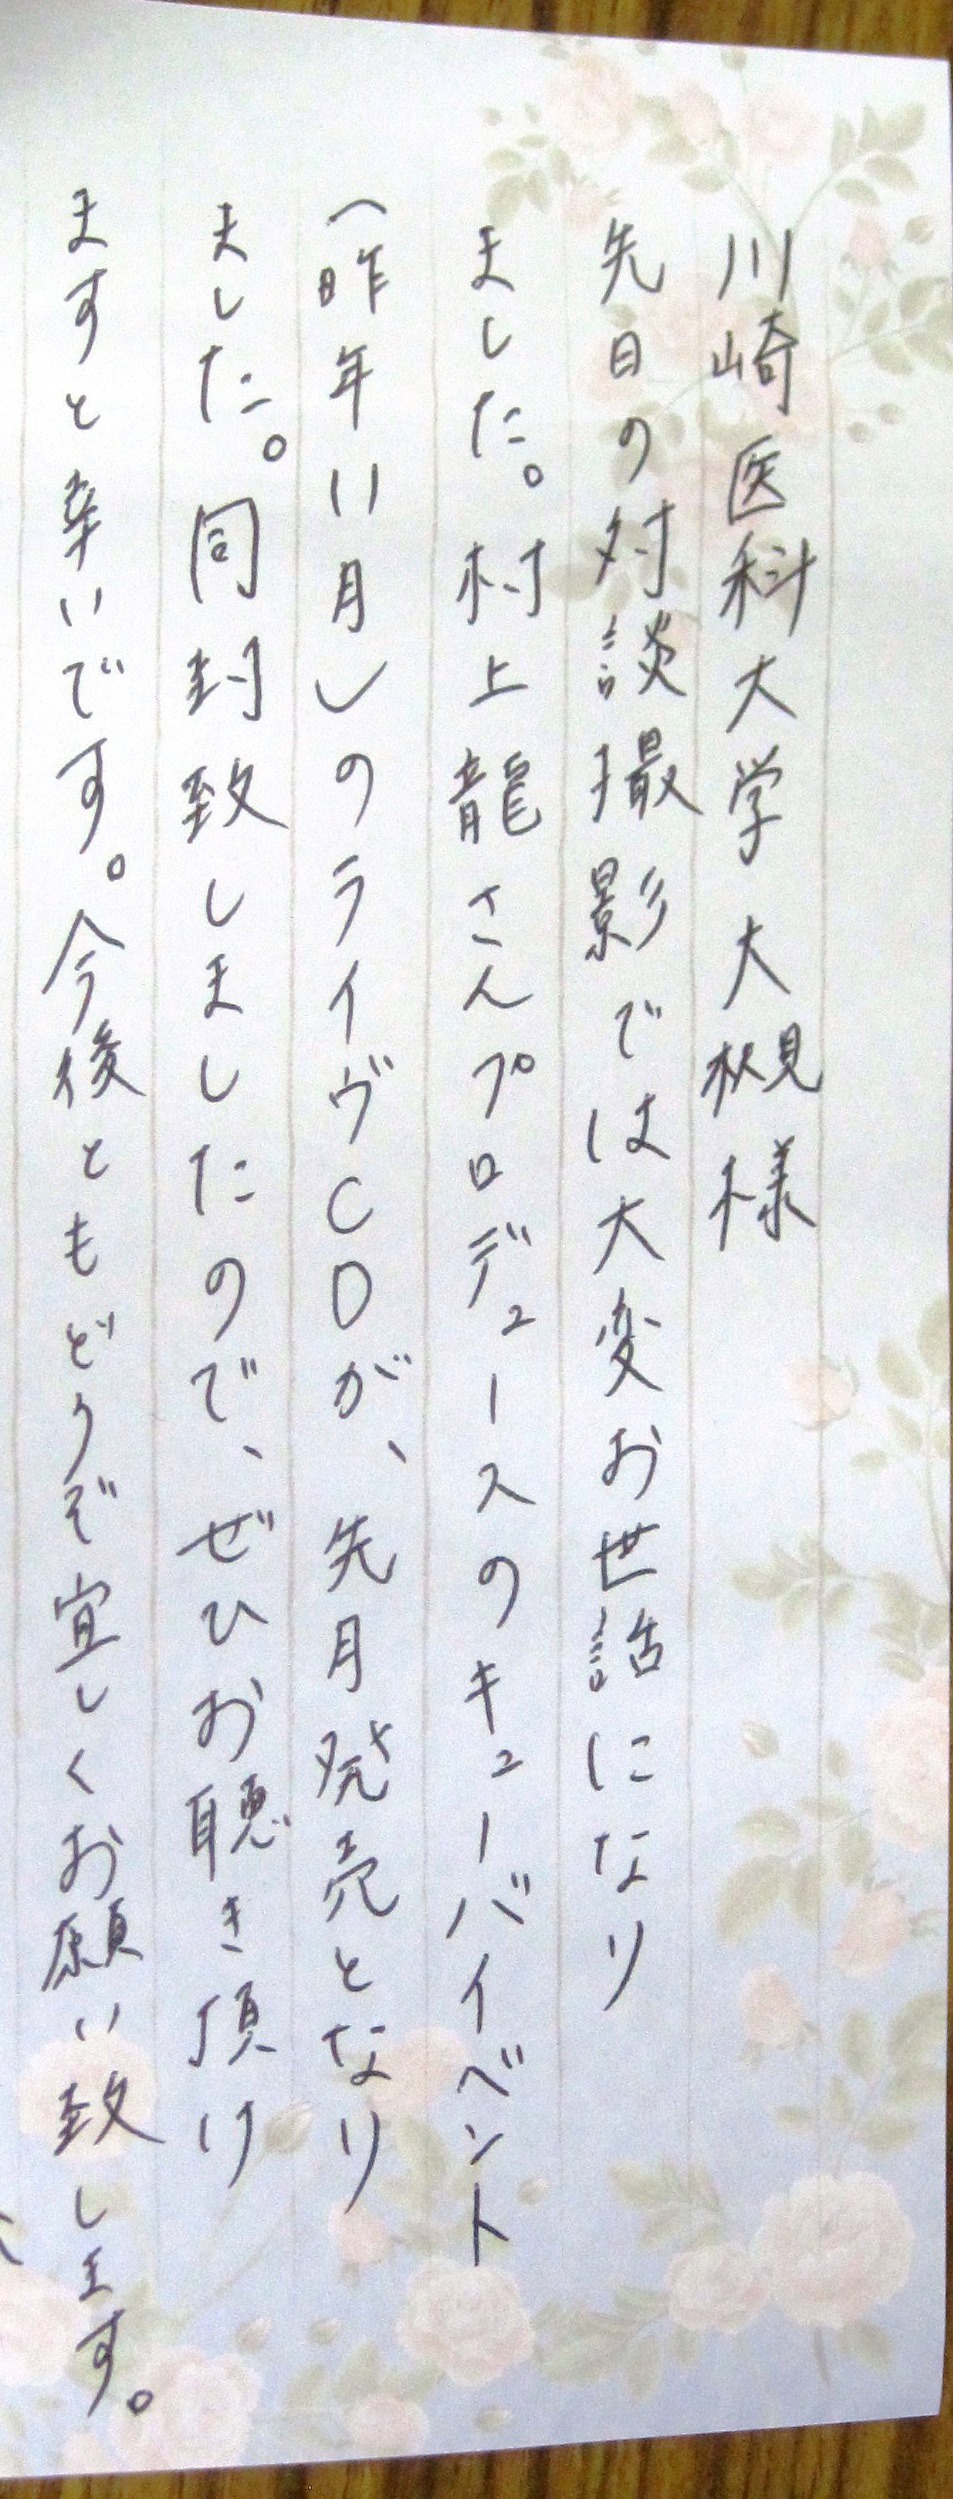 川崎医科大学 大槻様
先日の対談撮影では大変お世話になり
ました。村上龍さんプロデュースのキューバイベント
(昨年11月)のライヴCDが、先月発売となり
ました。同封致しましたので、ぜひお聴き頂け
ますと幸いです。今後ともどうぞ宜しくお願い致します。